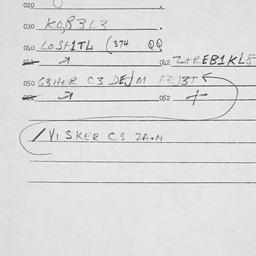 020
030 KO,8 3L3 .
040 LOSH1TL (374 QQ
042 Z4REB1KL8
050 G3HER C3 DEJM FEJ3T
052
/VISKER C3 ZA.N